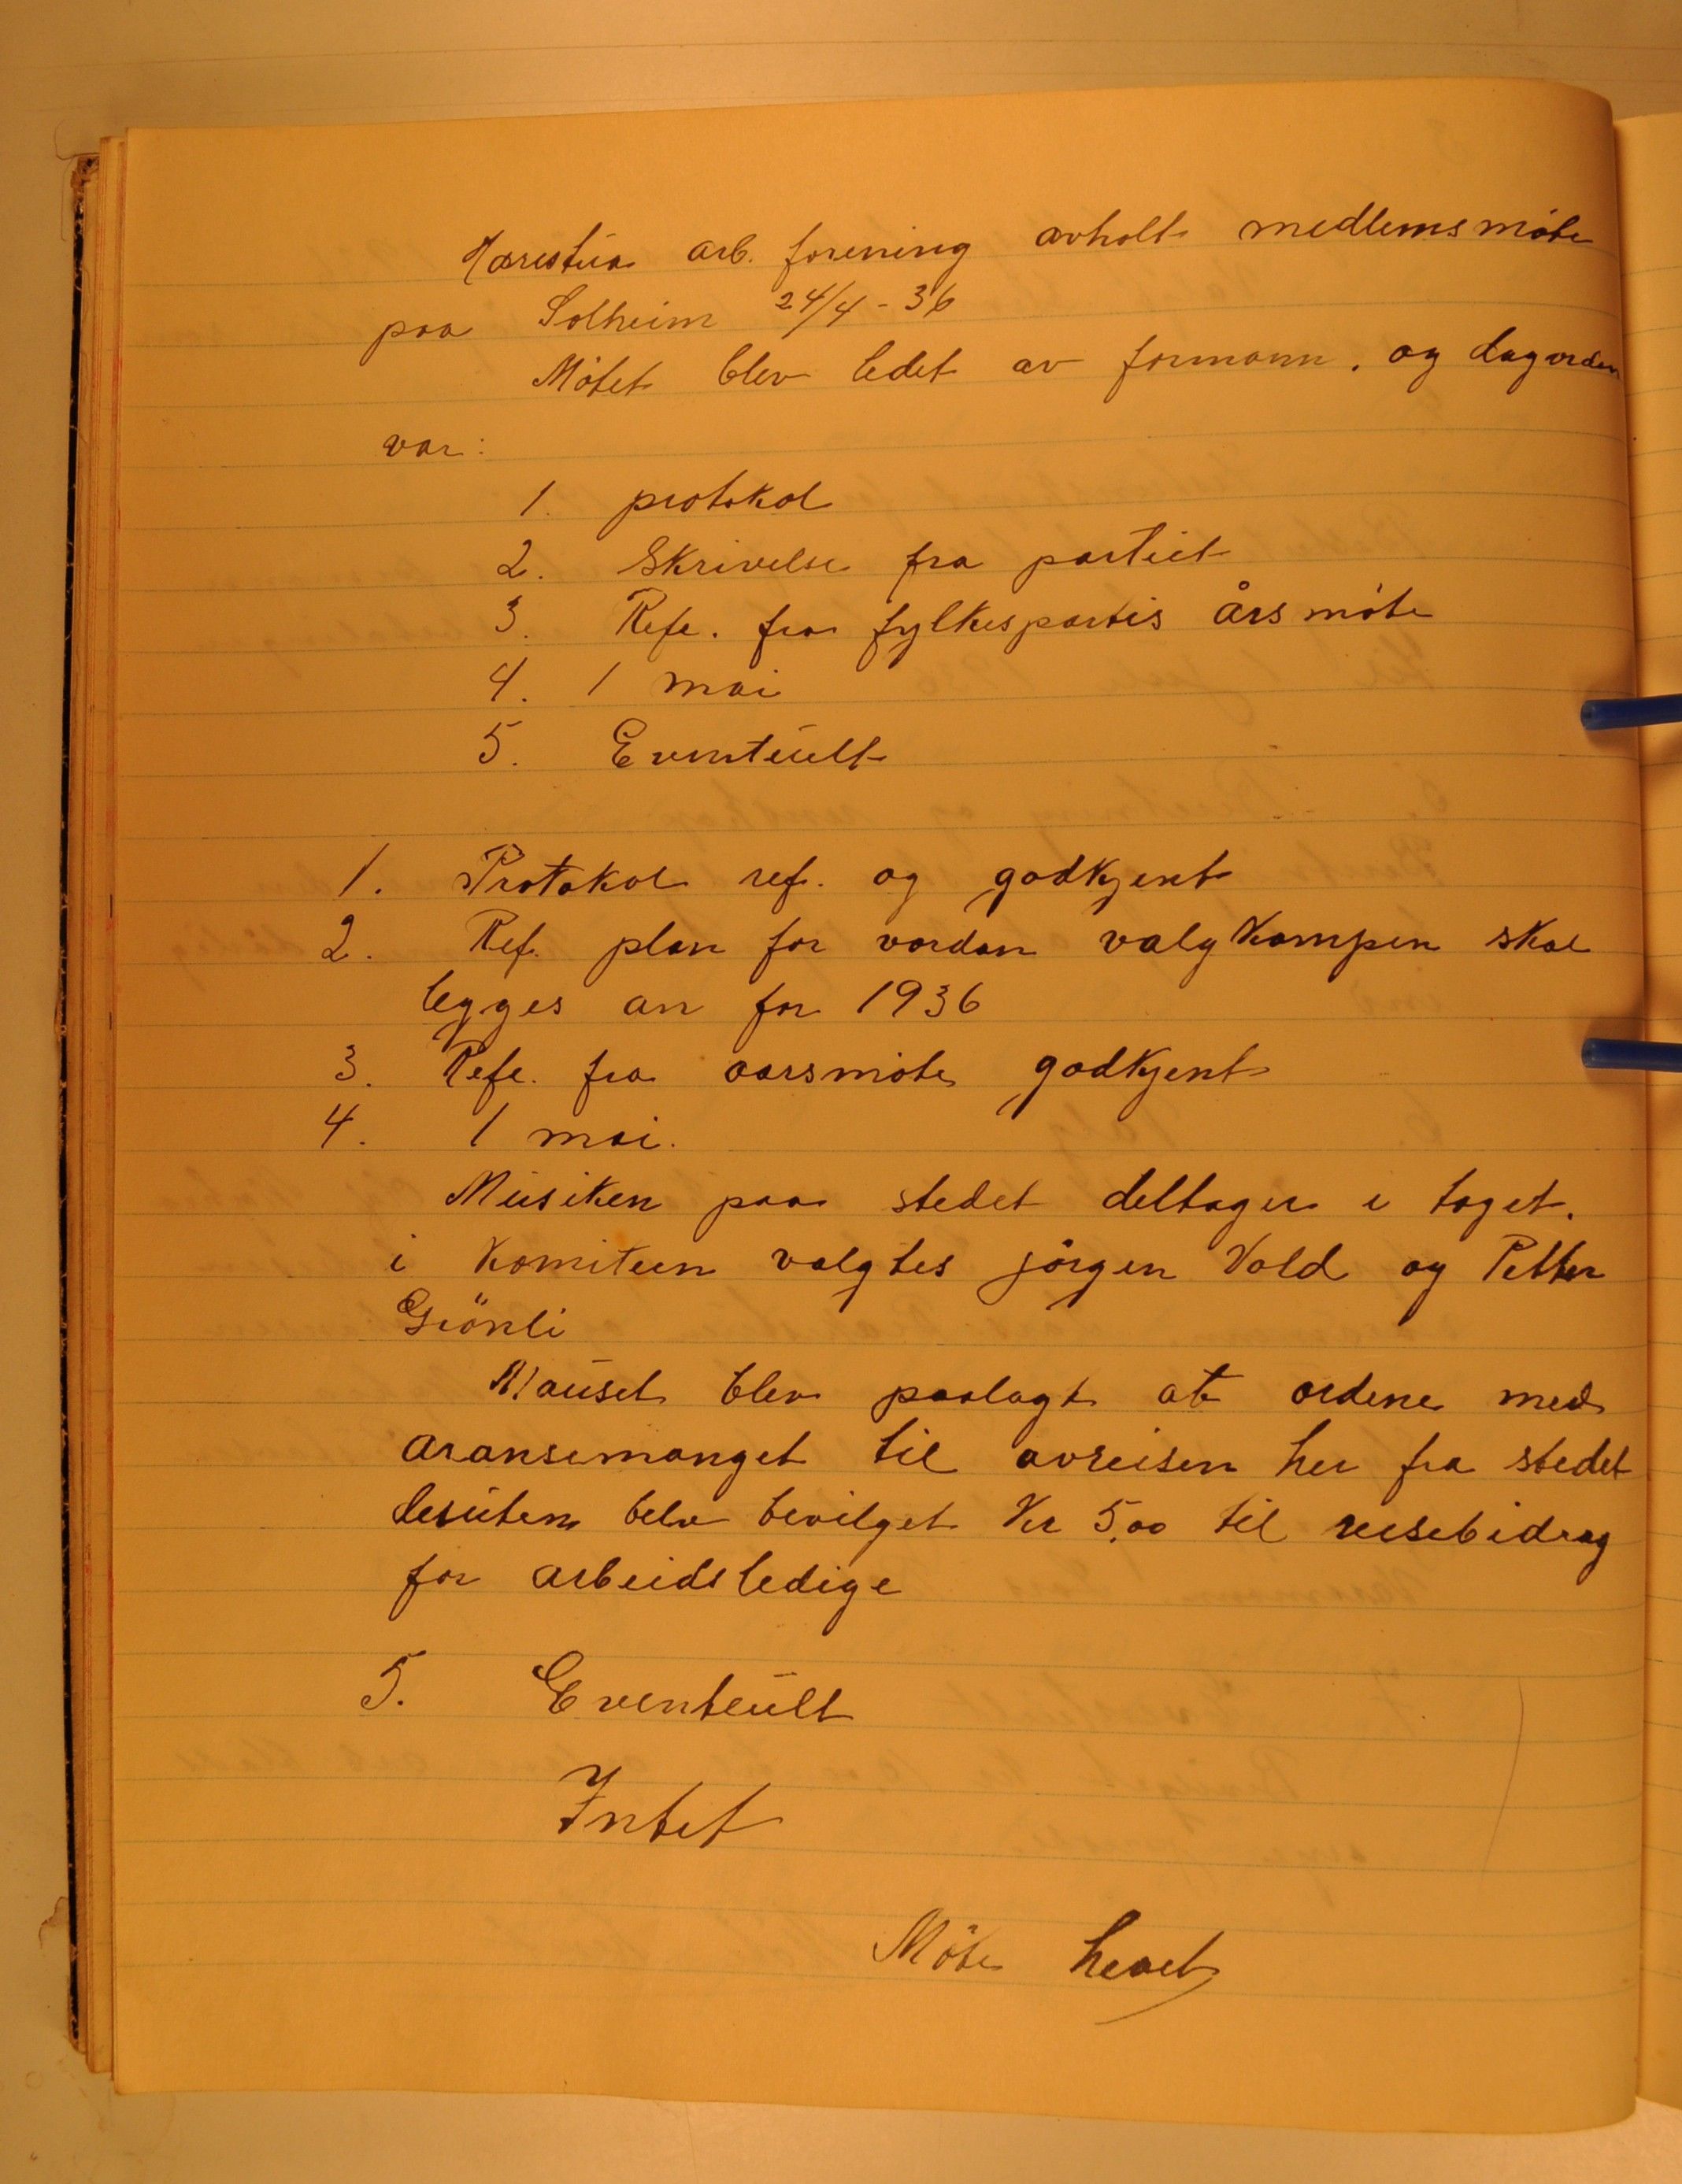 Harestua arb. forening avholt medlemsmöte
paa Solheim 24/4-36
Mötet blev ledet av formann. og dagorden
var:
1. protokol
2. Skrivelse fra partiet
3. Refe. fra fylkespartis årsmöte
4. 1 mai
5. Eventuelt
1. Protokol ref. og godkjent
2. Ref. plan for vordan valgkampen skal
legges an for 1936
3. Refe. fra aarsmöte godkjent
4. 1 mai.
Musiken paa stedet deltager i toget.
i komiteen valgtes jörgen Vold og Petter
Grönli
Mauset blev paalagt at ordene med
aransemanget til avreisen her fra stedet
desuten belv bevilget Kr 5,00 til reisebidrag
for arbeidsledige
5. Eventeult
Intet
Möte hevet